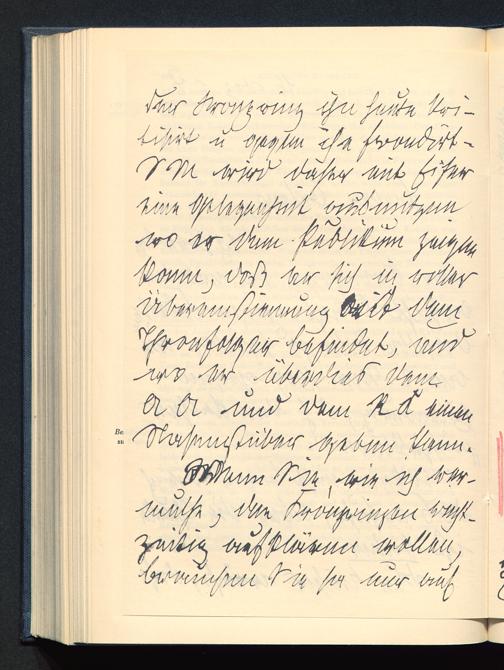 der Kronprinz ihn heute kri-
tisirt u gegen ihn frondirt-
S M wird daher mit Eifer
eine Gelegenheit ausnutzen
wo er dem Publikum zeigen
kann, daß er sich in voller
Übereinstimmung mit dem
Thronfolger befindet, und
wo er überdies dem
A A und dem R K einen
Nasenstüber geben kann.
Wenn Sie, wie ich ver-
muthe, den Kronprinzen recht-
zeitig aufklären wollen,
brauchen Sie ja nur auf
Be
zu